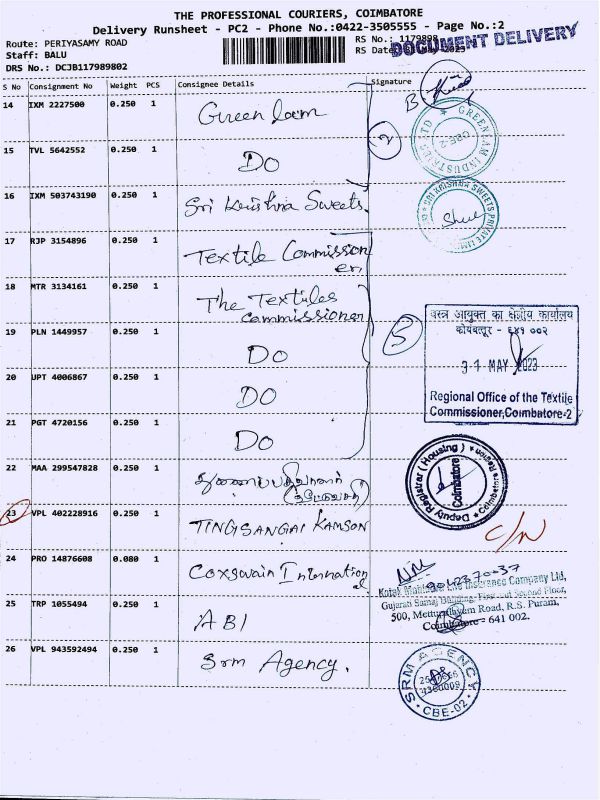 THE PROFESSIONAL COURIERS, COIMBATORE
Delivery Runsheet - PC2 - Phone No.:0422-3505555 - Page No.:2
Route: PERIYASAMY ROAD
Staff: BALU
DRS No.: DCJB117989802
RS No.: 1179898
RS Date
DOCUMENT DELIVERY
S No Consignment No Weight PCS Consignee Details Signature
14 IXM 2227500 0.250 1 Green lam
B.
2
GREENLAM INDUSTRIES LTD
CBE-2
15 TVL 5642552 0.250 1 DO
16 IXM 503743190 0.250 1 Sri Krishna Sweets.
SRI KRISHNA SWEETS PRIVATE LIMITED
17 RJP 3154896 0.250 1 Textile Commission
er.
18 MTR 3134161 0.250 1 The Textiles
Commissioner
19 PLN 1449957 0.250 1 DO
5
वस्त्र आयुक्त का क्षेत्रीय कार्यालय
कोयंबत्तूर - ६४१ ००२
31 MAY 2023
Regional Office of the Textile
Commissioner,Coimbatore-2
20 UPT 4006867 0.250 1 DO
21 PGT 4720156 0.250 1 DO
22 MAA 299547828 0.250 1
Deputy Registrar (Housing)
Coimbatore
Coimbatore Region
23 VPL 402228916 0.250 1 TINGSANGAI KAMSON
C/N
24 PRO 14876608 0.080 1 Coxswain International
Kotak Mahindra Life Insurance Company Ltd,
Gujarati Samaj Building, First and Second Floor,
500, Mettupalayam Road, R.S. Puram,
Coimbatore - 641 002.
25 TRP 1055494 0.250 1 ABI
26 VPL 943592494 0.250 1 Srm Agency.
SRM AGENCY
CBE-02